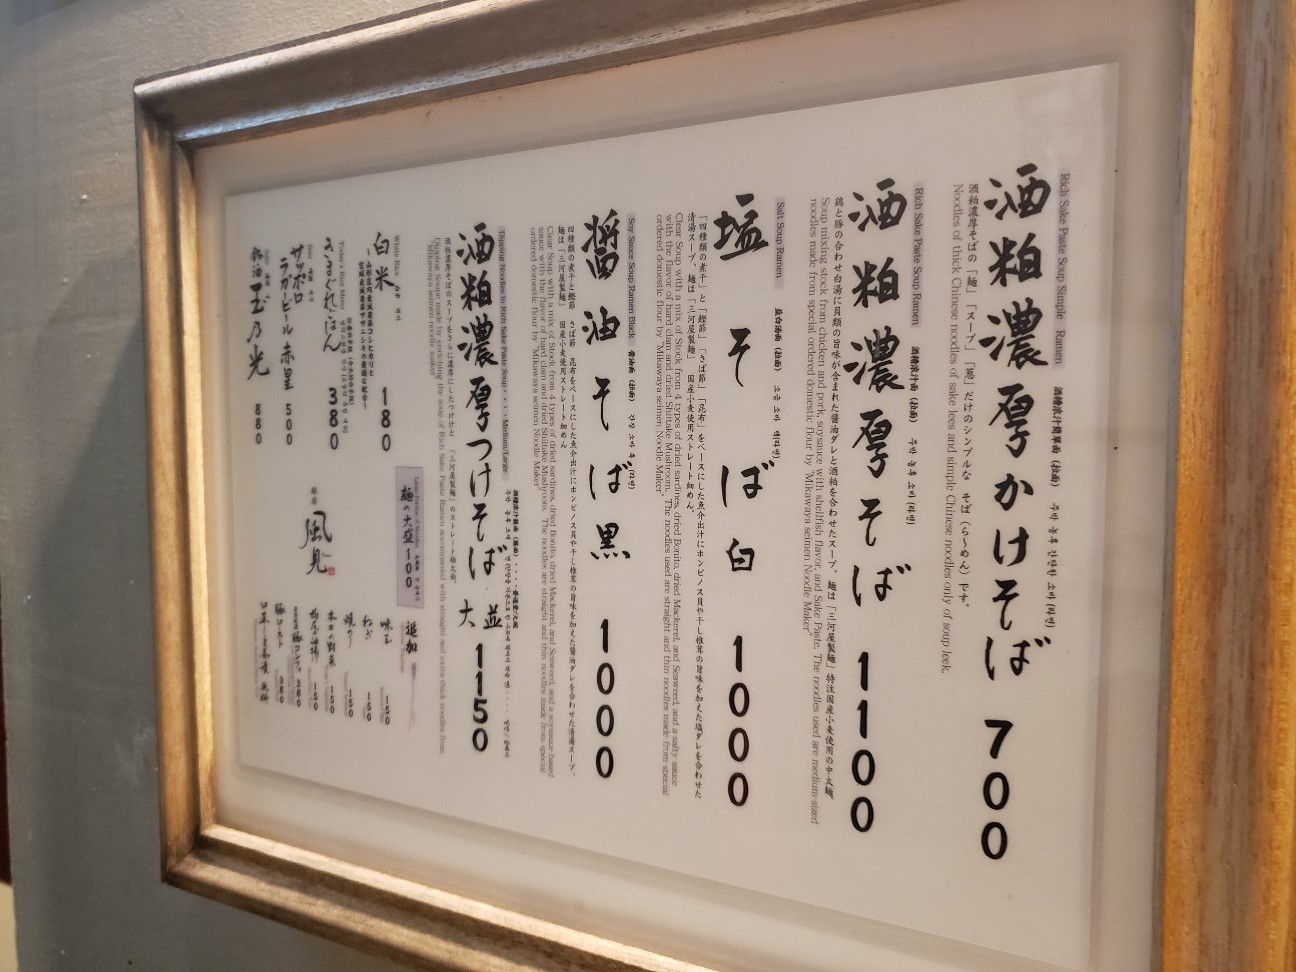 Rich Sake Paste Soup Simple Ramen
酒粕濃厚かけそば 700
酒粕濃厚そばの「麺」「スープ」「葱」だけのシンプルな そば（らーめん）です。
Noodles of thick Chinese noodles of sake lees and simple Chinese noodles only of soup leek.
Rich Sake Paste Soup Ramen
酒粕濃厚そば 1100
鶏と豚の合わせ白湯に貝類の旨味が含まれた醤油ダレと酒粕を合わせたスープ。麺は「三河屋製麺」特注国産小麦使用の中太麺。
Soup mixing stock from chicken and pork, soysauce with shellfish flavor, and Sake Paste. The noodles used are medium-sized
noodles made from special ordered domestic flour by "Mikawaya seimen Noodle Maker"
Salt Soup Ramen
塩そば 白 1000
「四種類の煮干」と「鰹節」「さば節」「昆布」をベースにした魚介出汁にホンビノス貝や干し椎茸の旨味を加えた塩ダレを合わせた
清湯スープ、麺は「三河屋製麺」国産小麦使用ストレート細めん。
Clear Soup with a mix of Stock from 4 types of dried sardines, dried Bonito, dried Mackerel, and Seaweed, and a salty sauce
with the flavor of hard clam and dried Shiitake Mushroom. The noodles used are straight and thin noodles made from special
ordered domestic flour by "Mikawaya seimen Noodle Maker"
Soy Sauce Soup Ramen Black
醤油そば 黒 1000
四種類の煮干と鰹節 さば節 昆布をベースにした魚介出汁にホンビノス貝や干し椎茸の旨味を加えた醤油ダレを合わせた清湯スープ、
麺は「三河屋製麺」 国産小麦使用ストレート細めん
Clear Soup with a mix of Stock from 4 types of dried sardines, dried Bonito, dried Mackerel, and Seaweed, and a soysauce-based
sauce with the flavor of hard clam and dried Shiitake Mushroom. The noodles are straight and thin noodles made from special
ordered domestic flour by "Mikawaya seimen Noodle Maker"
Dipping Noodles in Rich Sake Paste Soup ・・・・Medium/Large
酒粕濃厚つけそば 並 大 1150
酒粕濃厚そばのスープをさらに濃厚にしたつけ汁と 「三河屋製麺」のストレート極太麺。
Dipping Soupe made by enriching the soup of Rich Sake Paste Ramen accompanied with straight and extra thick noodles from
"Mikawaya seimen noodle maker"
White Rice
白米 180
380
サッポロ
ラガービール 赤星 500
玉乃光 880
麺の大盛 100
風見
追加
味玉 150
ねぎ 150
150
本日の野菜 150
150
380
380